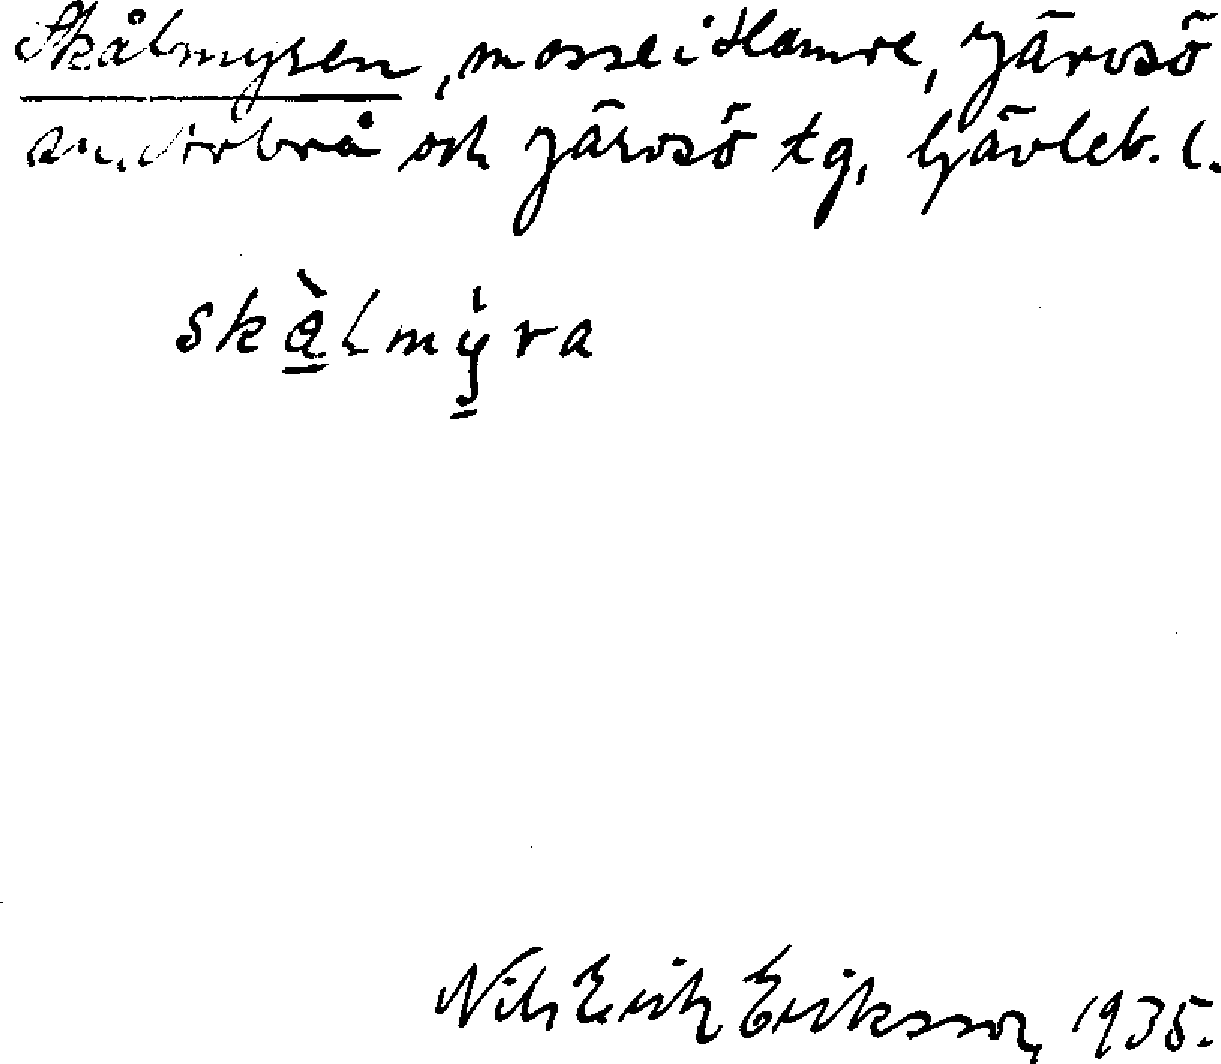 Skålmyren, mosse i Hamre, Järvsö
sn, Arbrå och Järvsö tg, Gävleb. l.
skålmyra
Nils Erik Eriksson, 1935.